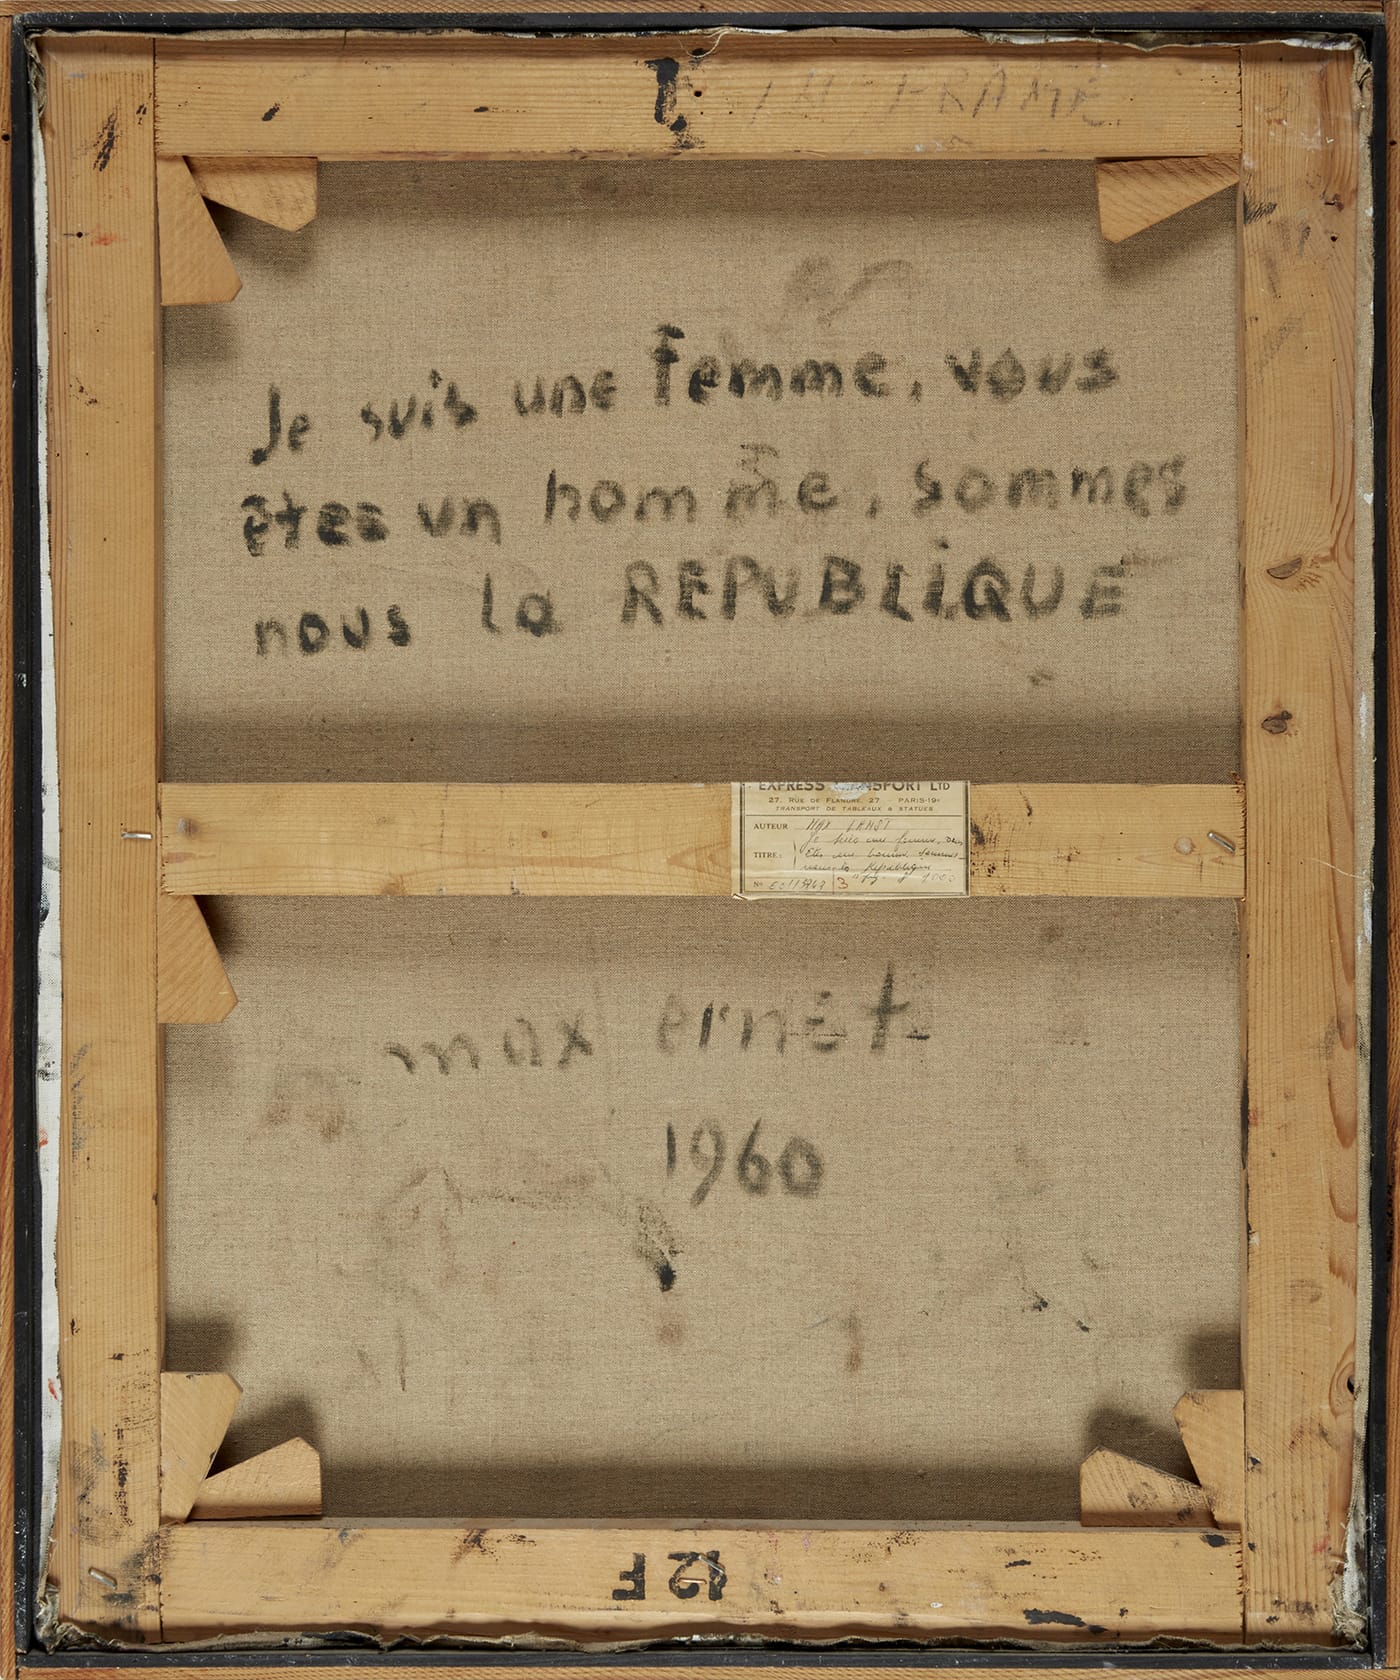 IN FRAME.
Je suis une femme, vous
êtes un homme, sommes
nous la REPUBLiQUE
EXPRESS TRANSPORT LTD
27, RUE DE FLANDRE, 27 PARIS-19e
TRANSPORT DE TABLEAUX & STATUES
AUTEUR MAX ERNST
Je suis une femme, vous
TITRE: êtes un homme, sommes
nous la République
No 3
max ernst
1960
12F